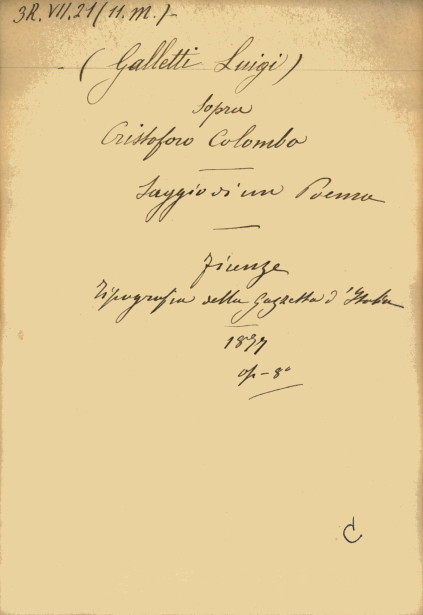 3R. VII. 21 (11. m.)-
(Galletti Luigi)
Sopra
Cristoforo Colombo
Saggio di un Poema
Firenze
Tipografia della Gazzetta d'Italia
1877
op - 8°
C